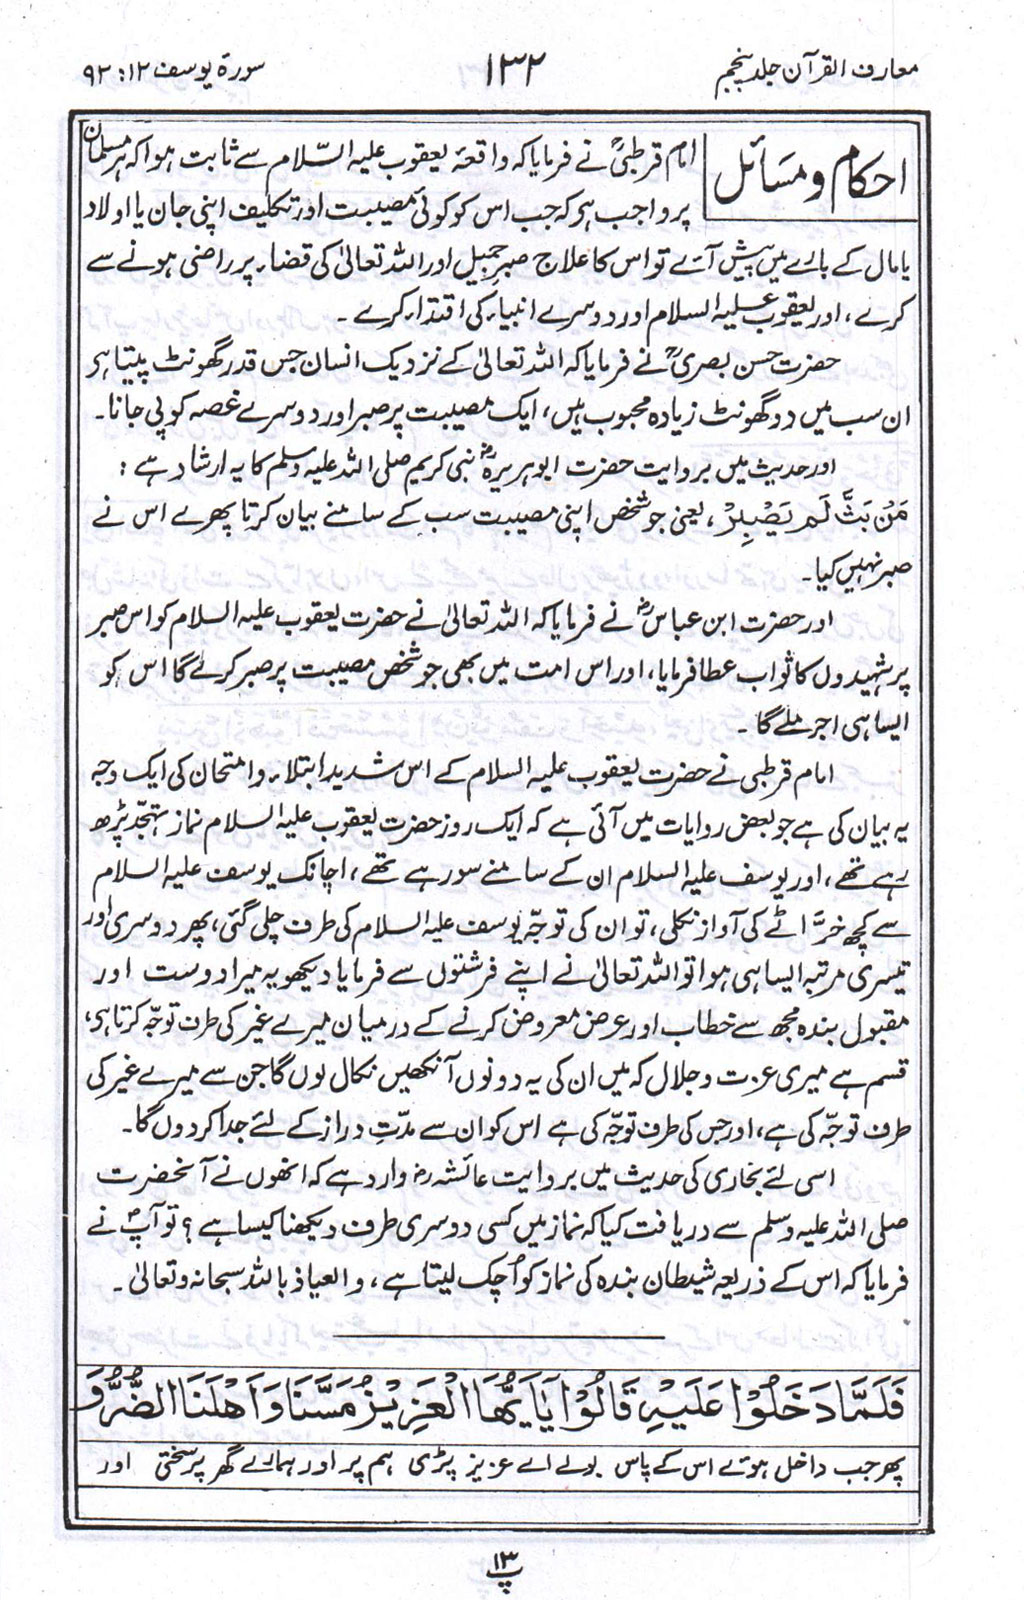 معارف القرآن جلد پنجم
۱۳۲
سورۃ یوسف ۱۲ : ۹۲
احکام و مسائل
امام قرطبیؒ نے فرمایا کہ واقعۂ یعقوب علیہ السّلام سے ثابت ہوا کہ ہر مسلمان
پر واجب ہی کہ جب اس کو کوئی مصیبت اور تکلیف اپنی جان یا اولاد
یا مال کے بارے میں پیش آئے تو اس کا علاج صبرِ جمیل اور اللہ تعالیٰ کی قضاء پر راضی ہونے سے
کرے، اور یعقوب علیہ السلام اور دوسرے انبیاء کی اقتداء کرے۔
حضرت حسن بصریؒ نے فرمایا کہ اللہ تعالیٰ کے نزدیک انسان جس قدر گھونٹ پیتا ہی
ان سب میں دو گھونٹ زیادہ محبوب ہیں، ایک مصیبت پر صبر اور دوسرے غصہ کو پی جانا۔
اور حدیث میں بروایت حضرت ابو ہریرہؓ نبی کریم صلی اللہ علیہ وسلم کا یہ ارشاد ہے :
مَنْ بَثَّ لَمْ یَصْبِرْ، یعنی جو شخص اپنی مصیبت سب کے سامنے بیان کرتا پھرے اس نے
صبر نہیں کیا۔
اور حضرت ابن عباسؓ نے فرمایا کہ اللہ تعالیٰ نے حضرت یعقوب علیہ السلام کو اس صبر
پر شہیدوں کا ثواب عطا فرمایا، اور اس امت میں بھی جو شخص مصیبت پر صبر کرے گا اس کو
ایسا ہی اجر ملے گا۔
امام قرطبی نے حضرت یعقوب علیہ السلام کے اس شدید ابتلاء و امتحان کی ایک وجہ
یہ بیان کی ہے جو بعض روایات میں آئی ہے کہ ایک روز حضرت یعقوب علیہ السلام نماز تہجّد پڑھ
رہے تھے، اور یوسف علیہ السلام ان کے سامنے سو رہے تھے، اچانک یوسف علیہ السلام
سے کچھ خرّاٹے کی آواز نکلی، تو ان کی توجّہ یوسف علیہ السلام کی طرف چلی گئی، پھر دوسری اور
تیسری مرتبہ ایسا ہی ہوا تو اللہ تعالیٰ نے اپنے فرشتوں سے فرمایا دیکھو یہ میرا دوست اور
مقبول بندہ مجھ سے خطاب اور عرض معروض کرنے کے درمیان میرے غیر کی طرف توجّہ کرتا ہی،
قسم ہے میری عزت و جلال کہ میں ان کی یہ دونوں آنکھیں نکال لوں گا جن سے میرے غیر کی
طرف توجّہ کی ہے، اور جس کی طرف توجّہ کی ہے اس کو ان سے مدّتِ دراز کے لئے جدا کر دوں گا۔
اسی لئے بخاری کی حدیث میں بروایت عائشہ رض وارد ہے کہ انھوں نے آنحضرت
صلی اللہ علیہ وسلم سے دریافت کیا کہ نماز میں کسی دوسری طرف دیکھنا کیسا ہے؟ تو آپؐ نے
فرمایا کہ اس کے ذریعہ شیطان بندہ کی نماز کو اُچک لیتا ہے، والعیاذ باللہ سبحانہ وتعالیٰ۔
فَلَمَّا دَخَلُوْا عَلَیْہِ قَالُوْا یٰٓاَیُّھَا الْعَزِیْزُ مَسَّنَا وَاَھْلَنَا الضُّرُّ وَ
پھر جب داخل ہوئے اس کے پاس بولے اے عزیز پڑی ہم پر اور ہمارے گھر پر سختی اور
پ ۱۳